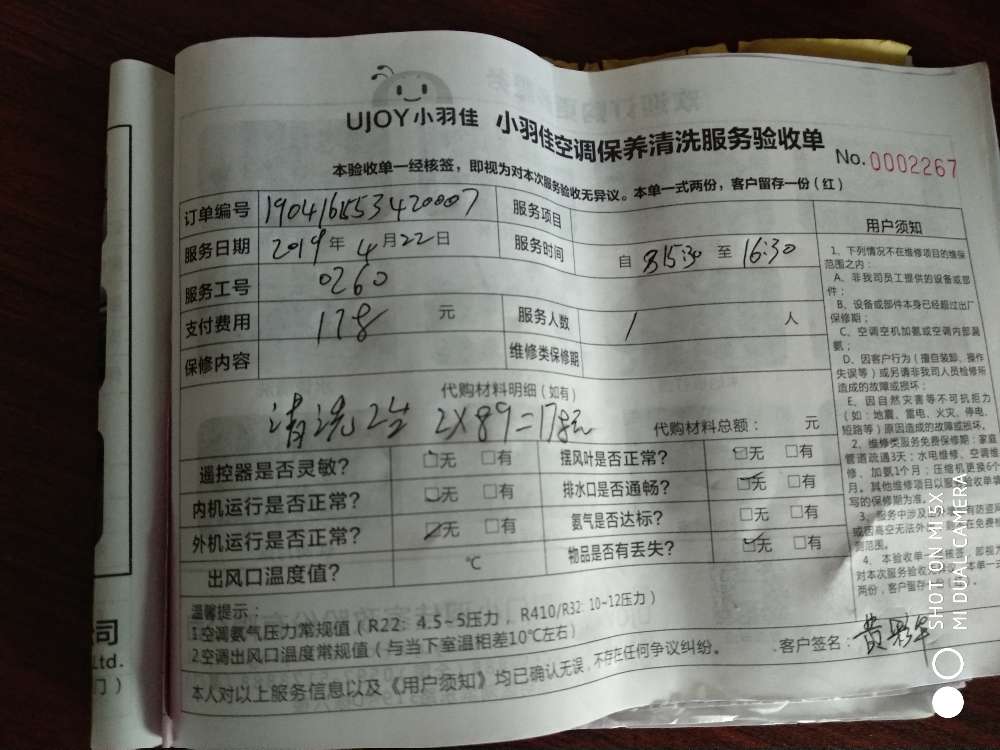 UJOY小羽佳 小羽佳空调保养清洗服务验收单 No.0002267
本验收单一经核签，即视为对本次服务验收无异议。本单一式两份，客户留存一份（红）
订单编号 服务项目
服务日期 2019年4月22日 服务时间 自 15:30 至 16:30
服务工号 0260
支付费用 178 元 服务人数 1 人
保修内容 维修类保修期
代购材料明细（如有）
清洗2台 2X89=178元 代购材料总额： 元
遥控器是否灵敏? □无 □有 摆风叶是否正常? □无 □有
内机运行是否正常? □无 □有 排水口是否通畅? □无 □有
外机运行是否正常? □无 □有 氨气是否达标? □无 □有
出风口温度值? ℃ 物品是否有丢失? □无 □有
温馨提示：
1.空调氨气压力常规值（R22：4.5~5压力，R410/R32: 10~12压力）
2.空调出风口温度常规值（与当下室温相差10℃左右）
客户签名：
本人对以上服务信息以及《用户须知》均已确认无误，不存在任何争议纠纷。
用户须知
1、下列情况不在维修项目的维保
范围之内：
A、非我司员工提供的设备或部
件；
B、设备或部件本身已经超过出厂
保修期；
C、空调空机加氨或空调内部漏
氨；
D、因客户行为（擅自装卸、操作
失误等）或另请非我司人员检修所
造成的故障或损坏；
E、因自然灾害等不可抗拒力
（如：地震、雷电、火灾、停电、
短路等）原因造成的故障或损坏。
2、维修类服务免费保修期：家庭
管道疏通3天；水电维修、空调维
修、加氨1个月；压缩机更换6个
月。其他维修项目以服务验收单填
写的保修期为准。
3、服务中涉及 有防盗网
或因高空无法外 在免费维
范围。
4、本验收单 核签，即视为
对本次服务验收 本单一式
两份，客户留存
司
Ltd.
门）
SHOT ON MI 5X
MI DUAL CAMERA